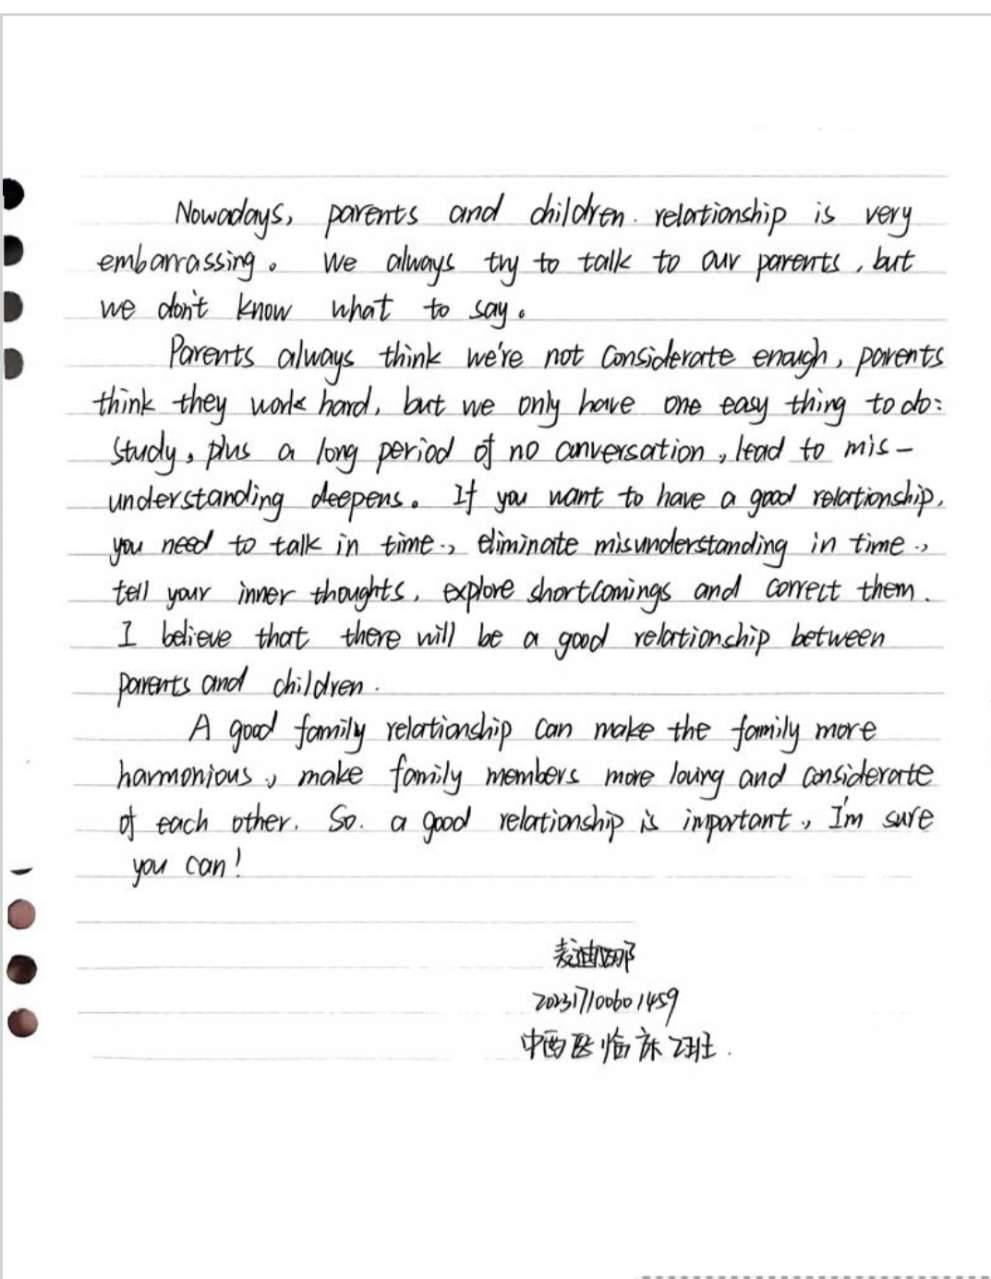 Nowadays, parents and children. relationship is very
embarrassing。 We always try to talk to our parents, but
we don't know what to say。
Parents always think we're not considerate enough, parents
think they work hard, but we only have one easy thing to do:
study, plus a long period of no conversation, lead to mis-
understanding deepens。 If you want to have a good relationship,
you need to talk in time., eliminate misunderstanding in time.,
tell your inner thoughts, explore shortcomings and correct them.
I believe that there will be a good relationship between
parents and children.
A good family relationship can make the family more
harmonious., make family members more loving and considerate
of each other. So. a good relationship is important., I'm sure
you can!
麦迪娜
中西医临床2班.